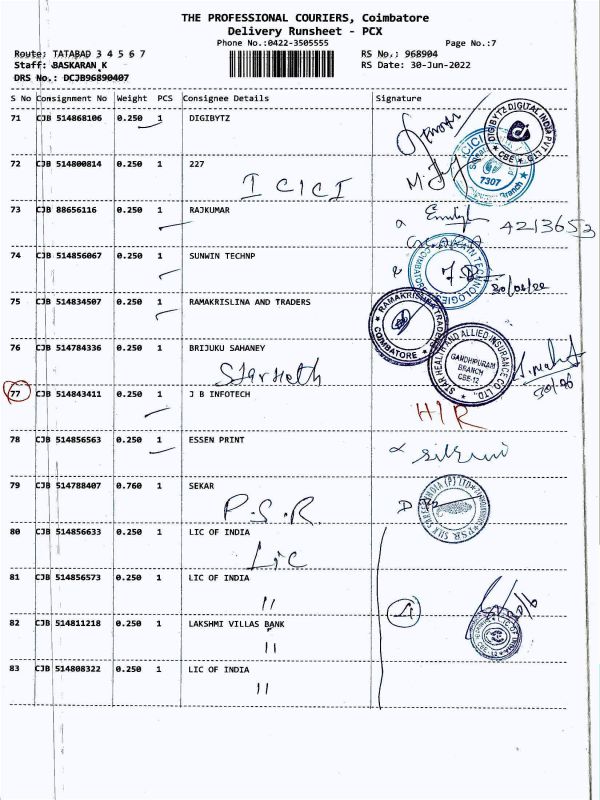 THE PROFESSIONAL COURIERS, Coimbatore
Delivery Runsheet - PCX
Phone No.:0422-3505555 Page No.:7
Route: TATABAD 3 4 5 6 7 RS No.: 968904
Staff: BASKARAN K RS Date: 30-Jun-2022
DRS No.: DCJB96890407
S No Consignment No Weight PCS Consignee Details Signature
71 CJB 514868106 0.250 1 DIGIBYTZ
DIGIBYTZ DIGITAL INDIA PVT LTD
CBE
72 CJB 514800814 0.250 1 227
ICICI
ICICI
7307
Branch
73 CJB 88656116 0.250 1 RAJKUMAR
4213653
74 CJB 514856067 0.250 1 SUNWIN TECHNP
TECHNOLOGIES
COIMBATORE
75 CJB 514834507 0.250 1 RAMAKRISLINA AND TRADERS
RAMAKRISHNA TRADERS
COIMBATORE
76 CJB 514784336 0.250 1 BRIJUKU SAHANEY
STAR HEALTH AND ALLIED INSURANCE CO LTD.,
GANDHIPURAM
BRANCH
CBE-12
77 CJB 514843411 0.250 1 J B INFOTECH
78 CJB 514856563 0.250 1 ESSEN PRINT
79 CJB 514788407 0.760 1 SEKAR
P.S.R.
80 CJB 514856633 0.250 1 LIC OF INDIA
Lic
81 CJB 514856573 0.250 1 LIC OF INDIA
"
82 CJB 514811218 0.250 1 LAKSHMI VILLAS BANK
"
LIC OF INDIA
83 CJB 514808322 0.250 1 LIC OF INDIA
"